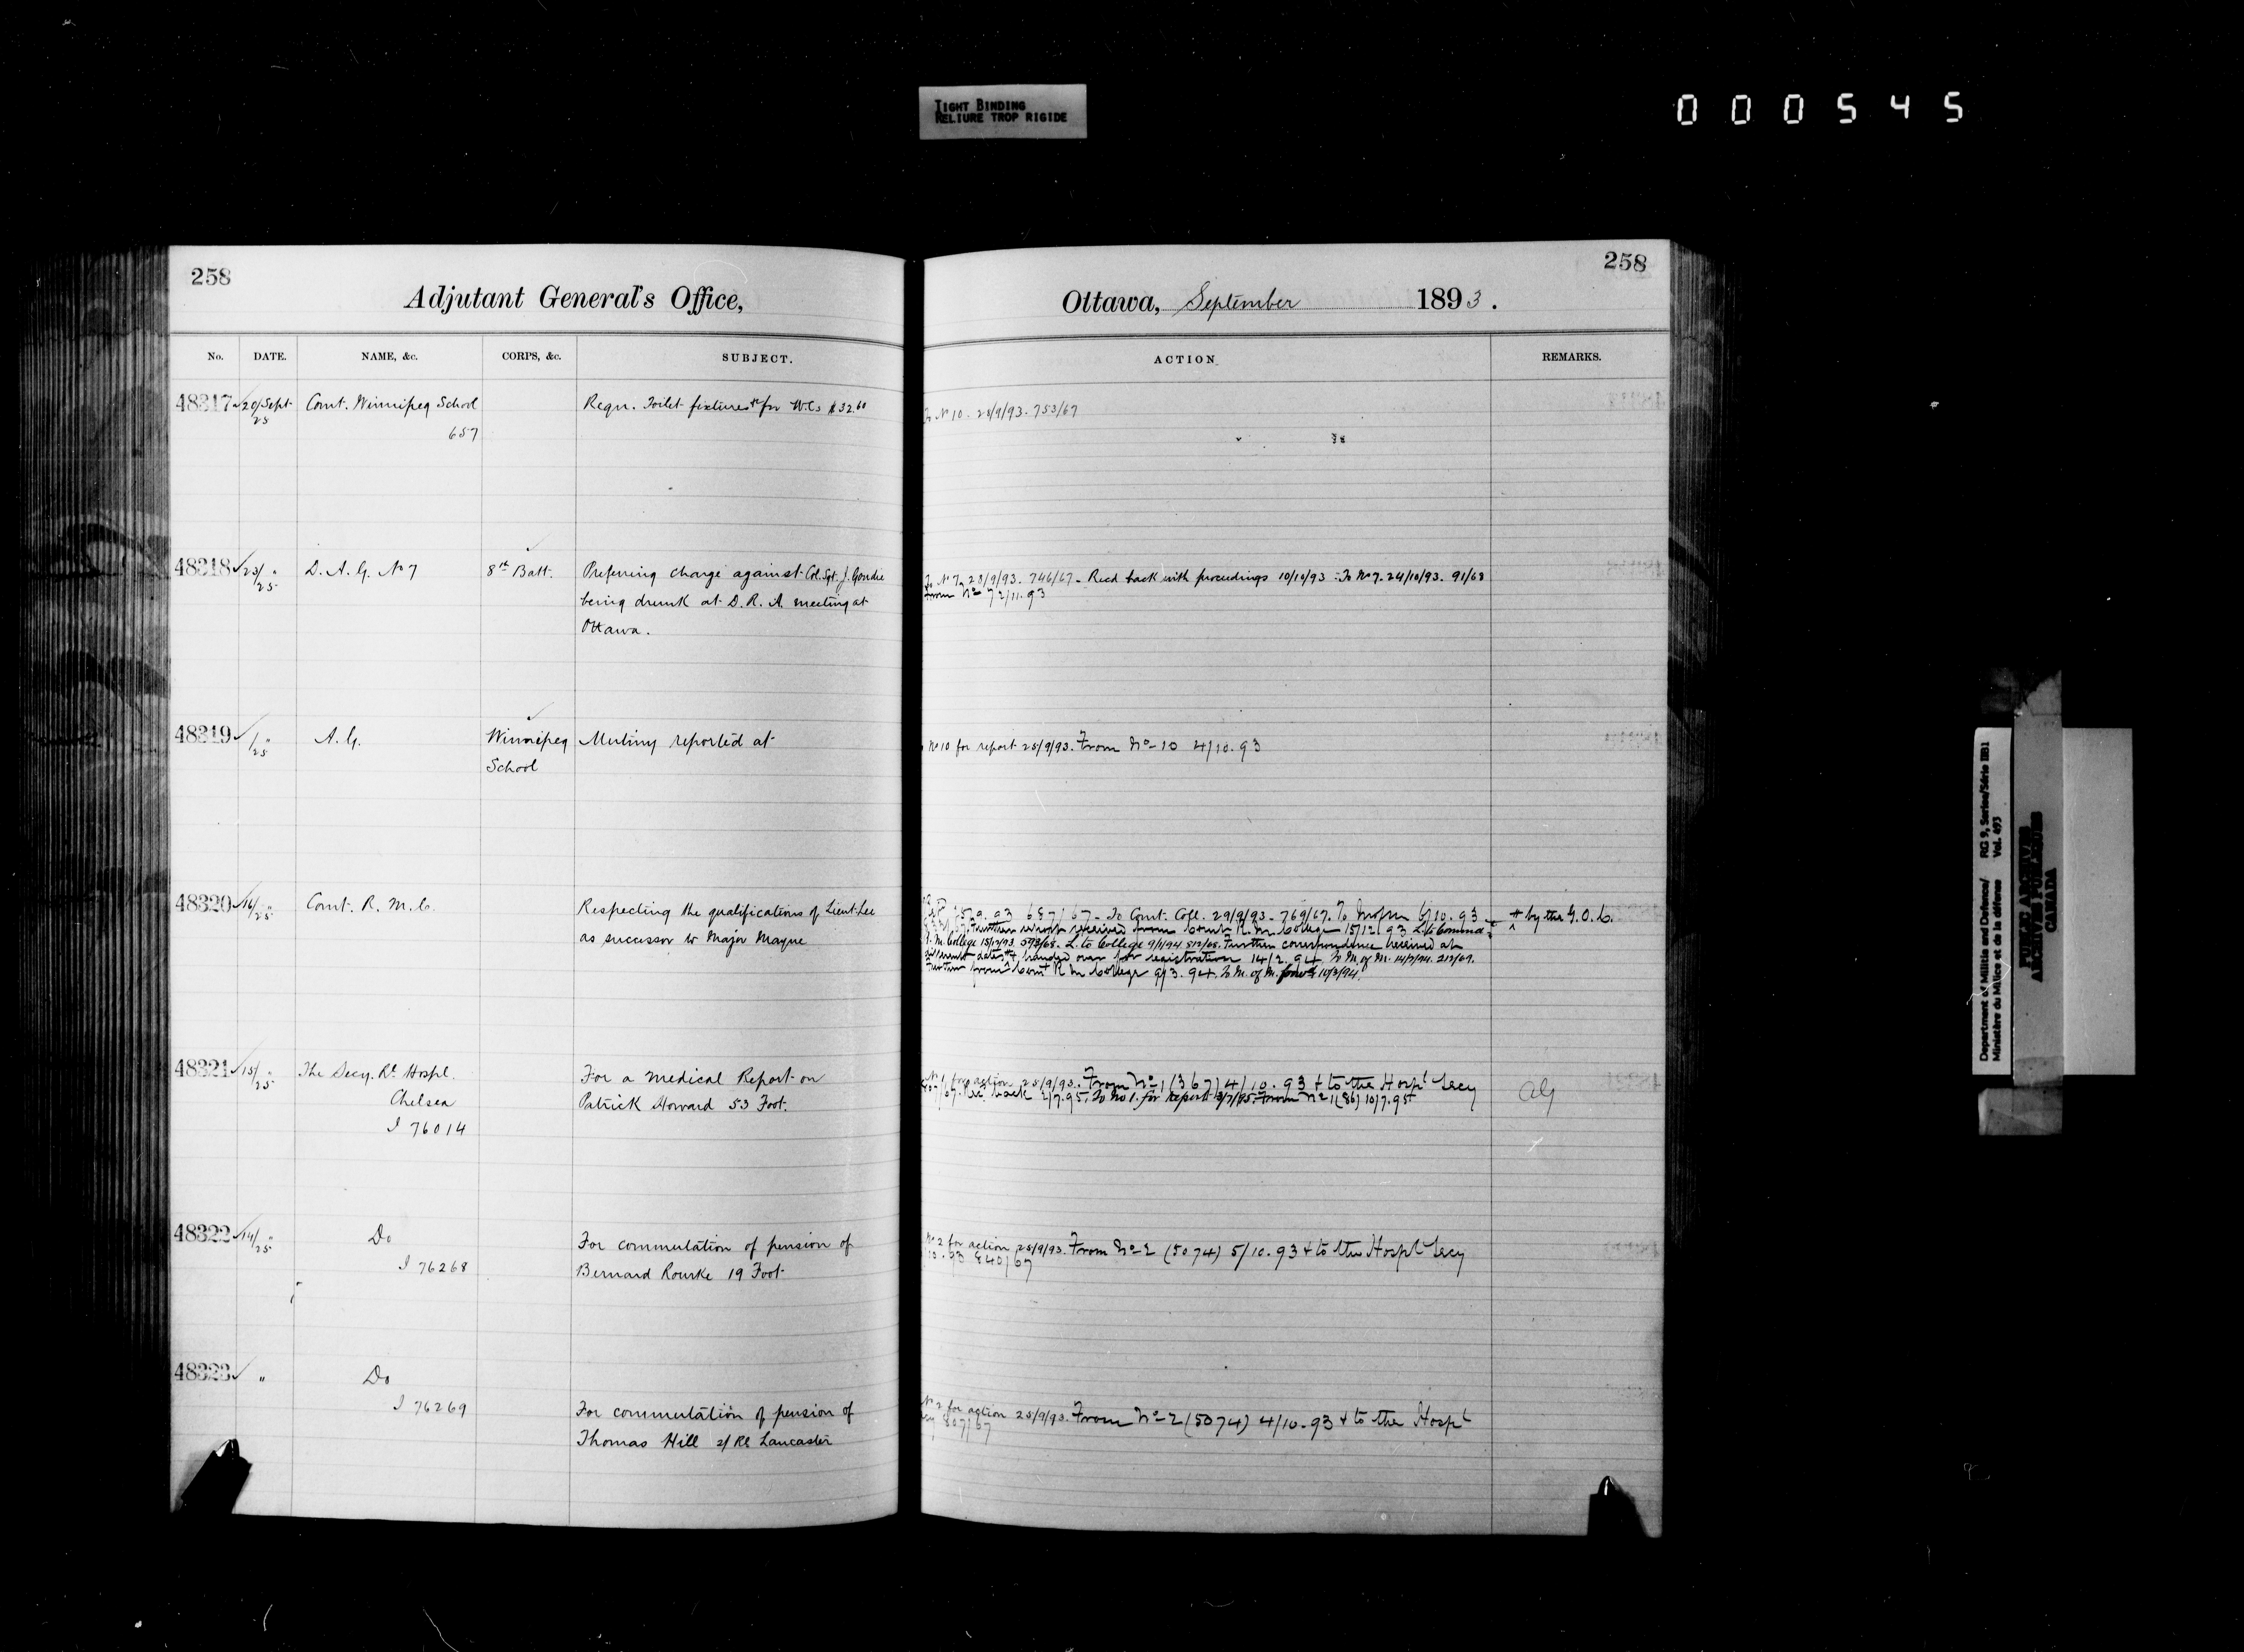 TIGHT BINDING
RELIURE TROP RIGIDE
000545
258
Adjutant General's Office,
No. DATE. NAME, &c. CORPS, &c. SUBJECT.
48317 20/Sept 25 Comt. Winnipeg School Reqn. Toilet fixtures &c for W.Cs $32.60
657
48318 23/25 " D. A. G. No 7 8th Batt. Preferring charge against Col. Sgt. J. Goudie
being drunk at D. R. A. meeting at
Ottawa.
48319 /25 " A. G. Winnipeg Mutiny reported at
School
48320 16/25 " Comt. R. M. C. Respecting the qualifications of Lieut. Lee
as successor to Major Mayne
48321 15/25 " The Secy. Rl. Hospl. For a Medical Report on
Chelsea Patrick Howard 53 Foot.
I 76014
48322 14/25 " Do For commutation of pension of
I 76268 Bernard Rourke 19 Foot
48323 " Do
I 76269 For commutation of pension of
Thomas Hill 2/Rl Lancaster
258
Ottawa, September 1893.
ACTION REMARKS.
To No 10. 28/9/93. 753/67
To No 7. 28/9/93. 746/67 - Recd back with proceedings 10/10/93 - To No 7. 24/10/93. 91/68
From No 7 2/11.93
No 10 for report 25/9/93. From No 10 4/10.93
93 687/67 - To Comt. Coll. 29/9/93 - 769/67. 6/10.93 # by the G.O.C.
Further report received from Comt R. M. College 15/12/93
R. M. College 15/12/93 593/68. L. to College 9/1/94 812/68. Further correspondence received at
different dates & handed over for registration 14/2.94. To M. of M. 14/2/94. 212/69.
Further from Comt R M College 9/3.94. To M. of M. 10/3/94.
No 1 for action 25/9/93. From No 1 (367) 4/10.93 & to the Hospl Secy AG
Rec. back 2/7.95. To No 1. for Report 3/7/95. From No 1 (86) 10/7.95
No 2 for action 25/9/93. From No 2 (5074) 5/10.93 & to the Hospl Secy
10.93 840/67
No 2 for action 25/9/93. From No 2 (5074) 4/10.93 & to the Hospl
Secy 807/67
Department of Militia and Defence/ RG 9, Series/Série IIB1
Ministère du Milice et de la défense Vol. 493
PUBLIC ARCHIVES
ARCHIVES PUBLIQUES
CANADA